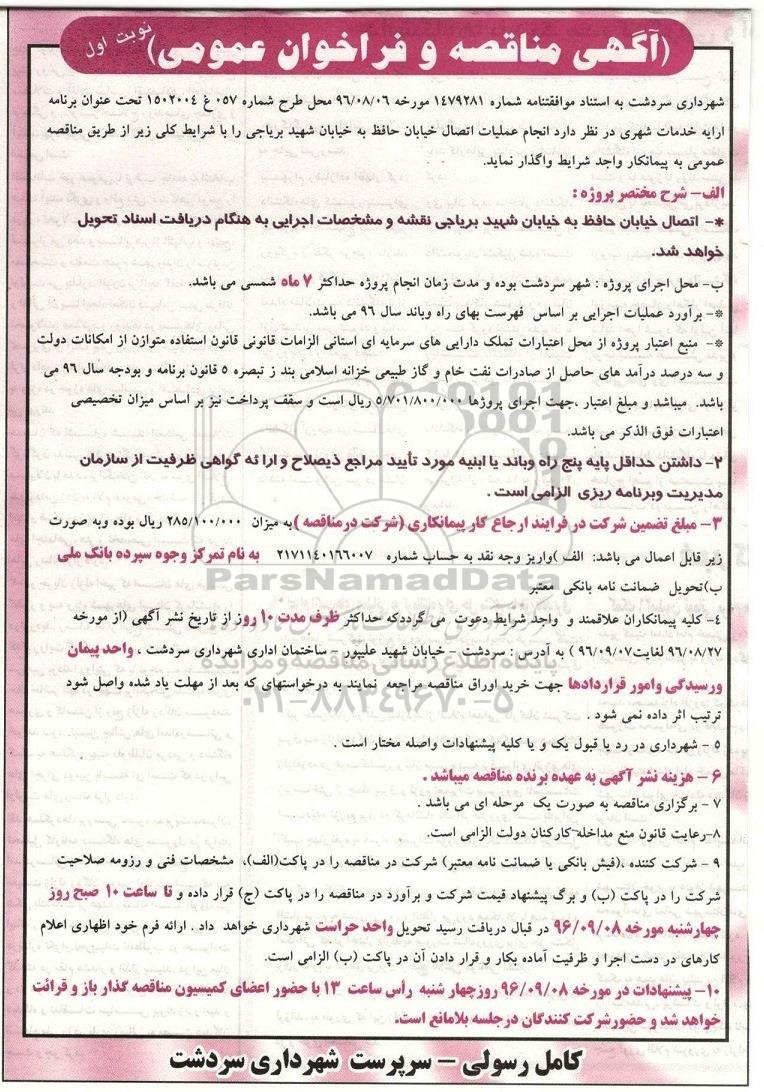 (آگهی مناقصه و فراخوان عمومی)
نوبت اول
شهرداری سردشت به استناد موافقتنامه شماره ۱۴۷۹۲۸۱ مورخه ۹۶/۰۸/۰۶ محل طرح شماره ۰۵۷ غ ۱۵۰۲۰۰۴ تحت عنوان برنامه
ارایه خدمات شهری در نظر دارد انجام عملیات اتصال خیابان حافظ به خیابان شهید بریاجی را با شرایط کلی زیر از طریق مناقصه
عمومی به پیمانکار واجد شرایط واگذار نماید.
الف- شرح مختصر پروژه :
*- اتصال خیابان حافظ به خیابان شهید بریاجی نقشه و مشخصات اجرایی به هنگام دریافت اسناد تحویل
خواهد شد.
ب- محل اجرای پروژه : شهر سردشت بوده و مدت زمان انجام پروژه حداکثر ۷ ماه شمسی می باشد.
*- برآورد عملیات اجرایی بر اساس فهرست بهای راه وباند سال ۹۶ می باشد.
*- منبع اعتبار پروژه از محل اعتبارات تملک دارایی های سرمایه ای استانی الزامات قانونی قانون استفاده متوازن از امکانات دولت
و سه درصد درآمد های حاصل از صادرات نفت خام و گاز طبیعی خزانه اسلامی بند ز تبصره ۵ قانون برنامه و بودجه سال ۹۶ می
باشد. میباشد و مبلغ اعتبار ،جهت اجرای پروژها ۵/۷۰۱/۸۰۰/۰۰۰ ریال است و سقف پرداخت نیز بر اساس میزان تخصیصی
اعتبارات فوق الذکر می باشد.
۲- داشتن حداقل پایه پنج راه وباند یا ابنیه مورد تأیید مراجع ذیصلاح و ارا ئه گواهی ظرفیت از سازمان
مدیریت وبرنامه ریزی الزامی است .
۳- مبلغ تضمین شرکت در فرایند ارجاع کار پیمانکاری (شرکت درمناقصه )به میزان ۲۸۵/۱۰۰/۰۰۰ ریال بوده وبه صورت
زیر قابل اعمال می باشد: الف )واریز وجه نقد به حساب شماره ۲۱۷۱۱۴۰۱۶۶۰۰۷ به نام تمرکز وجوه سپرده بانک ملی
ب)تحویل ضمانت نامه بانکی معتبر
ParsNamadData
۴- کلیه پیمانکاران علاقمند و واجد شرایط دعوت می گرددکه حداکثر ظرف مدت ۱۰ روز از تاریخ نشر آگهی (از مورخه
۹۶/۰۸/۲۷ لغایت۹۶/۰۹/۰۷ ) به آدرس : سردشت - خیابان شهید علیپور - ساختمان اداری شهرداری سردشت ، واحد پیمان
پایگاه اطلاع رسانی مناقصه و مزایده
ورسیدگی وامور قراردادها جهت خرید اوراق مناقصه مراجعه نمایند به درخواستهای که بعد از مهلت یاد شده واصل شود
۰۲۱-۸۸۳۴۹۶۷۰-۵
ترتیب اثر داده نمی شود .
۵ - شهرداری در رد یا قبول یک و یا کلیه پیشنهادات واصله مختار است .
۶ - هزینه نشر آگهی به عهده برنده مناقصه میباشد .
۷ - برگزاری مناقصه به صورت یک مرحله ای می باشد .
۸-رعایت قانون منع مداخله کارکنان دولت الزامی است.
۹ - شرکت کننده ،(فیش بانکی یا ضمانت نامه معتبر) شرکت در مناقصه را در پاکت(الف)، مشخصات فنی و رزومه صلاحیت
شرکت را در پاکت (ب) و برگ پیشنهاد قیمت شرکت و برآورد در مناقصه را در پاکت (ج) قرار داده و تا ساعت ۱۰ صبح روز
چهارشنبه مورخه ۹۶/۰۹/۰۸ در قبال دریافت رسید تحویل واحد حراست شهرداری خواهد داد . ارائه فرم خود اظهاری اعلام
کارهای در دست اجرا و ظرفیت آماده بکار و قرار دادن آن در پاکت (ب) الزامی است.
۱۰- پیشنهادات در مورخه ۹۶/۰۹/۰۸ روزچهار شنبه رأس ساعت ۱۳ با حضور اعضای کمیسیون مناقصه گذار باز و قرائت
خواهد شد و حضورشرکت کنندگان درجلسه بلامانع است.
کامل رسولی – سرپرست شهرداری سردشت